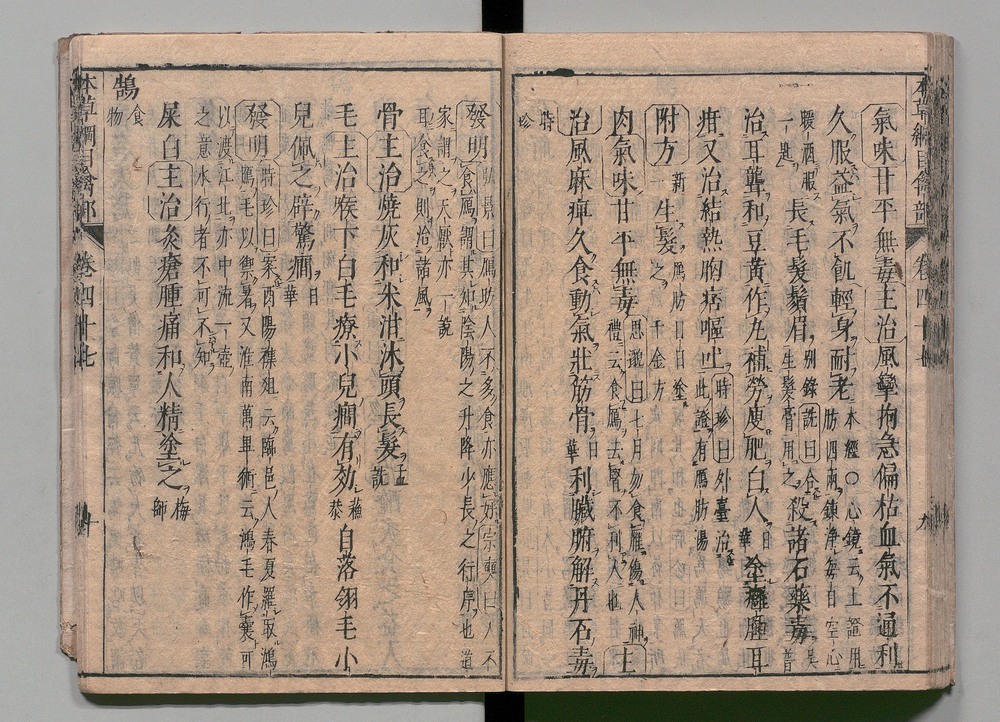 氣味甘平無毒主治風攣拘急偏枯血氣不通利
久服益氣不飢輕身耐老本經○心鏡云上證用
肪四兩鍊淨每日空心
暖酒服
一匙長毛髮鬚眉別錄詵曰合
生髮膏用之殺諸石藥毒吴
普
治耳聾和豆黃作丸補勞瘦肥白人日
華塗癰腫耳
疳又治結熱胸痞嘔吐時珍曰外臺治
此證有鴈肪湯
附方新
一生髮鴈肪日日塗
之千金方
肉氣味甘平無毒思邈曰七月勿食鴈傷人神
禮云食鴈去腎不利人也主
治風麻痺久食動氣壯筋骨日
華利臟腑解丹石毒
時
珍
發明弘景曰鴈肪人不多食亦應好宗奭曰人不
食鴈謂其知陰陽之升降少長之行序也道
家謂之天厭亦一說
耳食之則治諸風
骨主治燒灰和米泔沐頭長髮孟
詵
毛主治喉下白毛療小兒癇有效蘇
恭自落翎毛小
兒佩之辟驚癇日
華
發明時珍曰案酉陽雜俎云臨邑人春夏羅取鴻
鴈毛以禦暑又淮南萬畢術云鴻毛作囊可
以渡江此亦中流一壺
之意水行者不可不知
屎白主治灸瘡腫痛和人精塗之梅
師
鵠食
物
本草綱目禽部 卷四十七 九
本草綱目禽部 卷四十七 十